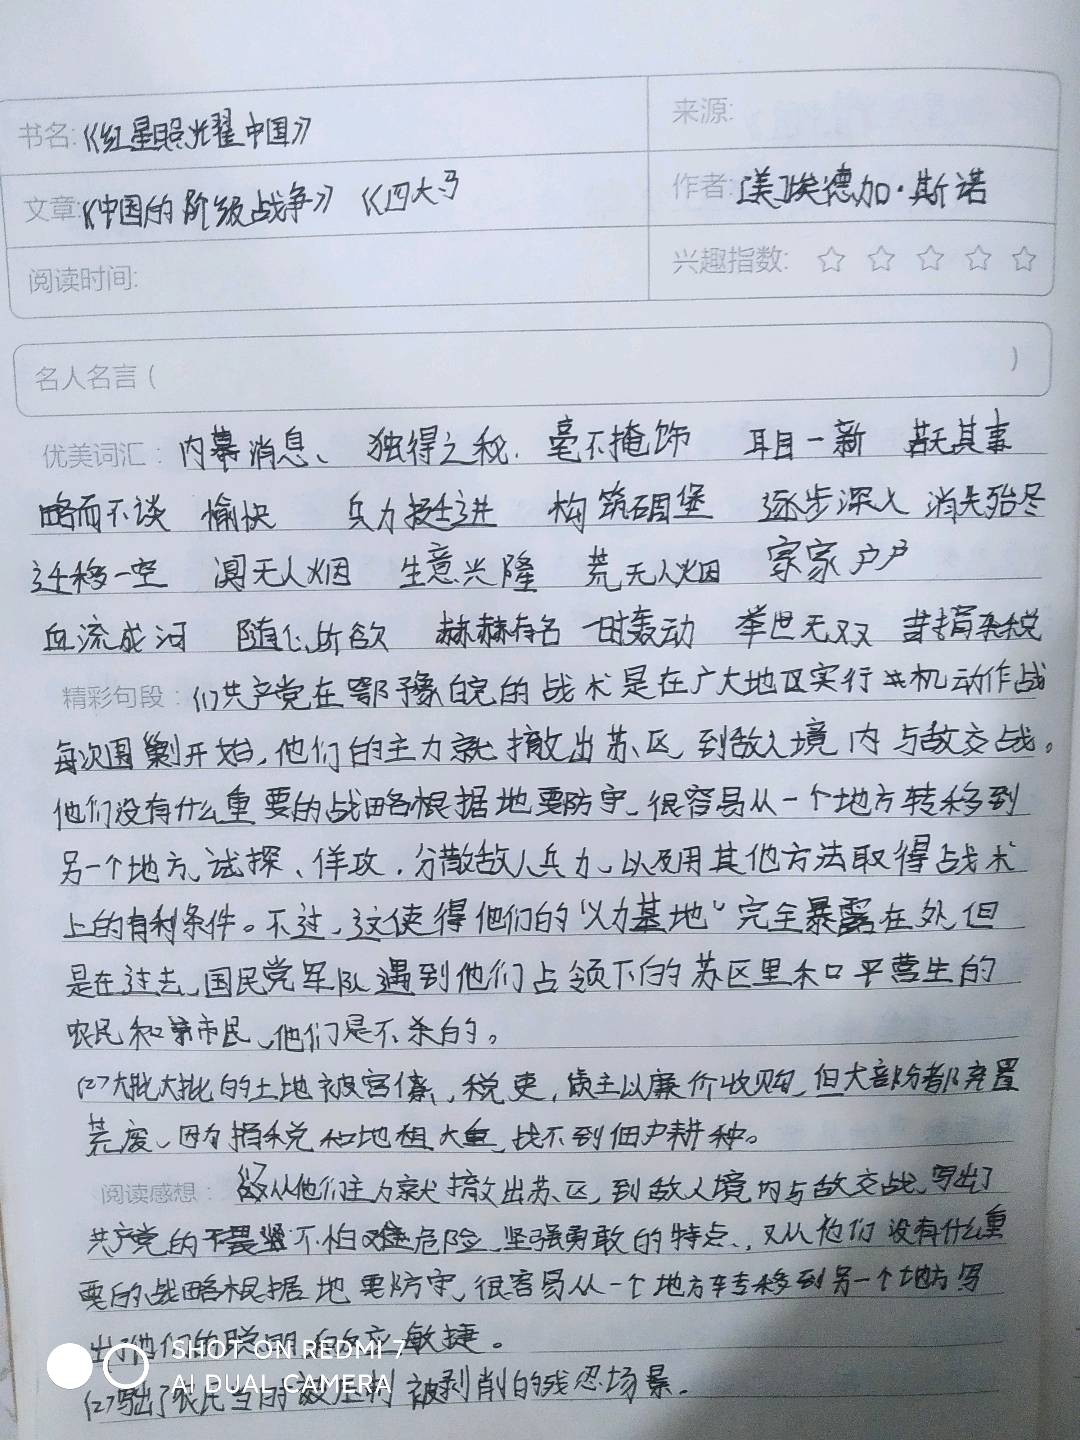 书名:《红星照耀中国》
来源:
文章:《中国的阶级战争》 《四大马
作者:[美]埃德加·斯诺
阅读时间:
兴趣指数: ☆ ☆ ☆ ☆ ☆
名人名言 ( )
优美词汇: 内幕消息、 独得之秘. 毫不掩饰 耳目一新 若无其事
略而不谈 愉快 兵力挺进 构筑碉堡 逐步深入 消失殆尽
迁移一空 渺无人烟 生意兴隆 荒无人烟 家家户户
血流成河 随心所欲 赫赫有名 一时轰动 举世无双 苛捐杂税
精彩句段: (1)共产党在鄂豫皖的战术是在广大地区实行 机动作战
每次围剿开始,他们的主力就撤出苏区,到敌人境内与敌交战。
他们没有什么重要的战略根据地要防守,很容易从一个地方转移到
另一个地方、试探、佯攻.分散敌人兵力、以及用其他方法取得战术
上的有利条件。不过、这使得他们的“人力基地”完全暴露在外,但
是在过去、国民党军队遇到他们占领下的苏区里和平营生的
农民和市民、他们是不杀的。
(2)大批大批的土地被官僚、税吏,债主以廉价收购,但大部份都弃置
荒废、因为捐税和地租太重,找不到佃户耕种。
阅读感想: (1)从他们主力就撤出苏区,到敌人境内与敌交战、写出了
共产党的 不怕 危险、坚强勇敢的特点、,又从他们没有什么重
要的战略根据地要防守、很容易从一个地方转移到另一个地方写
出了他们的聪明 敏捷。
(2)写出了农民当时 被剥削的残忍场景.
SHOT ON REDMI 7
AI DUAL CAMERA